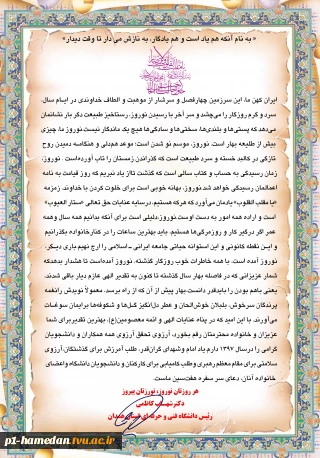 « به نام آنکه هم یاد است و هم یادگار، به نازش می‌دار تا وقت دیدار»
ایران کهن ما، این سرزمین چهارفصل و سرشار از موهبت و الطاف خداوندی در ایام سال،
سرد و گرم روزگار را می‌چشد و سر آخر با رسیدن نوروز، رستاخیز طبیعت دگر بار نشانمان
می‌دهد که پستی‌ها و بلندی‌ها، سختی‌ها و سادگی‌ها هیچ یک ماندگار نیست. نوروز ما، چیزی
بیش از طلیعه بهار است. نوروز، موسم نو شدن است؛ موعد همدلی و هنگامه دمیدن روح
تازگی در کالبد خسته و سرد طبیعت است که گذراندن زمستان را تاب آورده‌است. نوروز،
زمان رسیدگی به حساب و کتاب سالی است که گذشت تا از یاد نبریم که روز قیامت به نامه
اعمالمان رسیدگی خواهد شد. نوروز، بهانه خوبی است برای خلوت کردن با خداوند. زمزمه
«یا مقلب القلوب» یادمان می‌آورد که هر که هستیم، در سایه عنایات حق تعالی «ستار العیوب»
است و اراده همه امور به دست اوست. نوروز، دلیلی است برای آنکه بدانیم همه سال و همه
عمر اگر درگیر کار و روزمرگی‌ها هستیم، باید بهترین ساعات را در کنار خانواده بگذرانیم
و این نقطه کانونی و این استوانه حیاتی جامعه ایرانی ـ اسلامی را ارج نهیم. باری دیگر،
نوروز آمده است، با همه خاطرات خوب روزگار گذشته. نوروز آمده‌است تا هشدار بدهد که
شمار عزیزانی که در فاصله بهار سال گذشته تا کنون به تقدیر الهی عازم دیار باقی شدند،
یعنی باهم بودن را باید قدر دانست، بهار پیش از آن که از راه برسد، معمولاً نویدش را نغمه
پرندگان سرخوش، بلبلان خوش‌الحان و عطر دل‌انگیز گل‌ها و شکوفه‌ها برایمان سوغات
می‌آورند. با این امید که در پناه عنایات الهی و ائمه معصومین(ع)، بهترین تقدیر برای شما
عزیزان و خانواده محترمتان رقم بخورد، آرزوی تحقق آرزوی همه همکاران و دانشجویان
گرامی را در سال ۱۳۹۷ دارم. یاد امام و شهدای گران‌قدر، طلب آمرزش برای گذشتگان، آرزوی
سلامتی برای مقام معظم رهبری و طلب کامیابی برای کارکنان و دانشجویان دانشگاه و اعضای
خانواده آنان، دعای سر سفره هفت‌سین ماست.
هر روزتان نوروز، نوروزتان پیروز
دکتر شهاب کاظمی
رئیس دانشگاه فنی و حرفه ای استان همدان
p1-hamedan.tvu.ac.ir